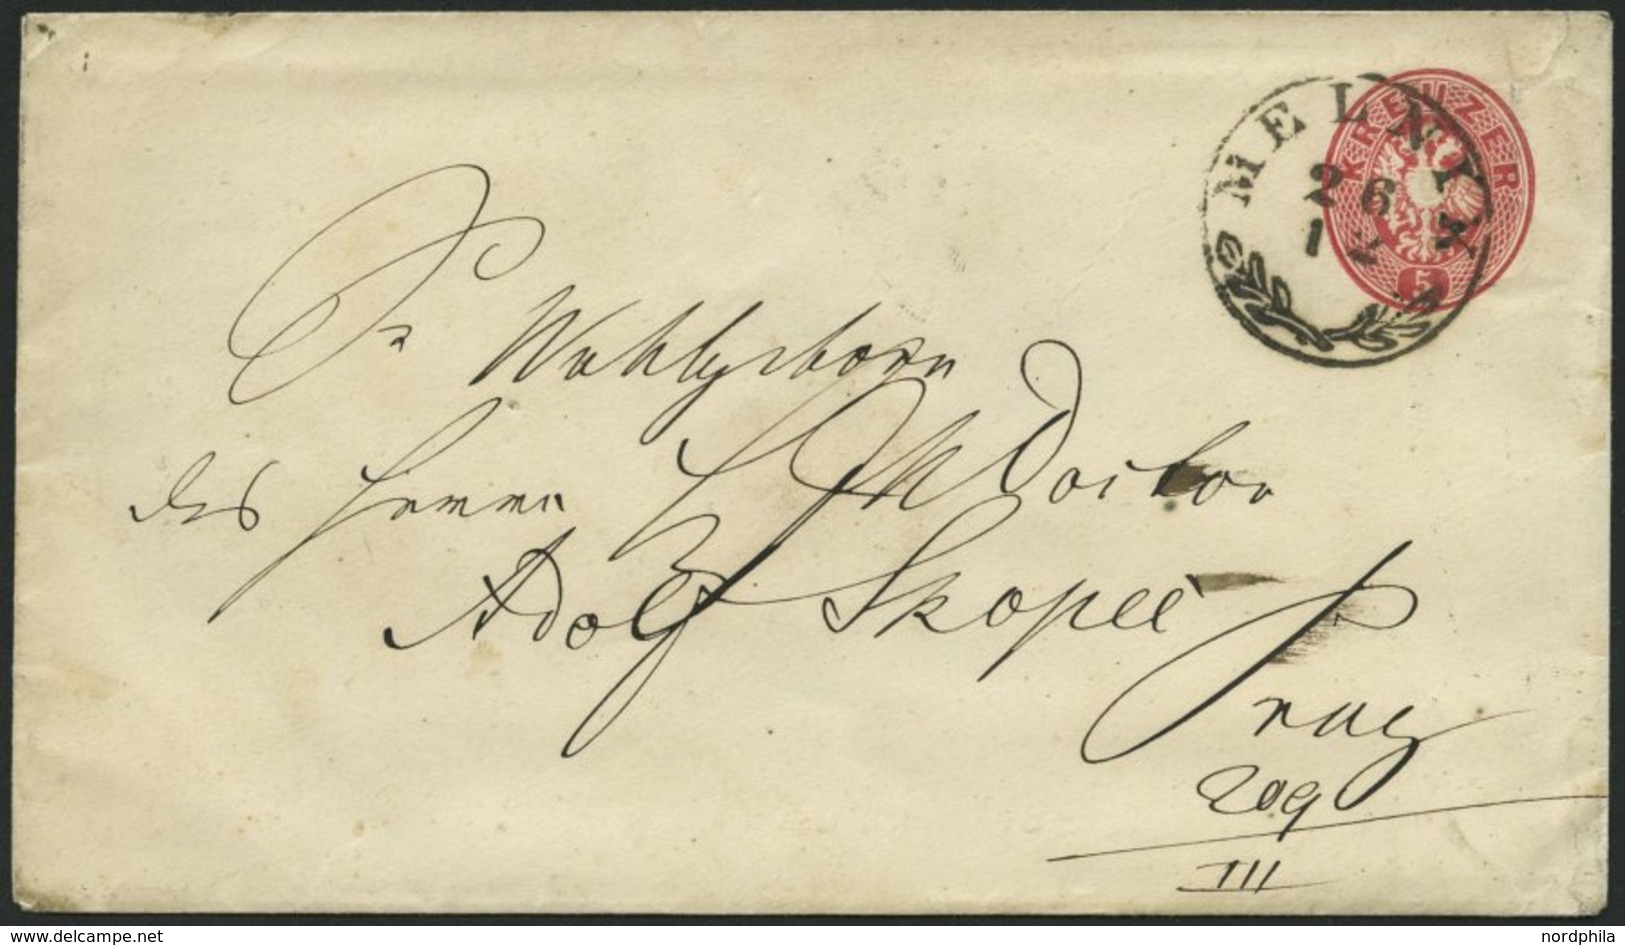 KREUZER
5
MELNIK
26
12
Sr Wohlgeboren
des Herrn Herrn Doctor
Adolf Skopec
Prag
209
III
www.delcampe.net
nordphila